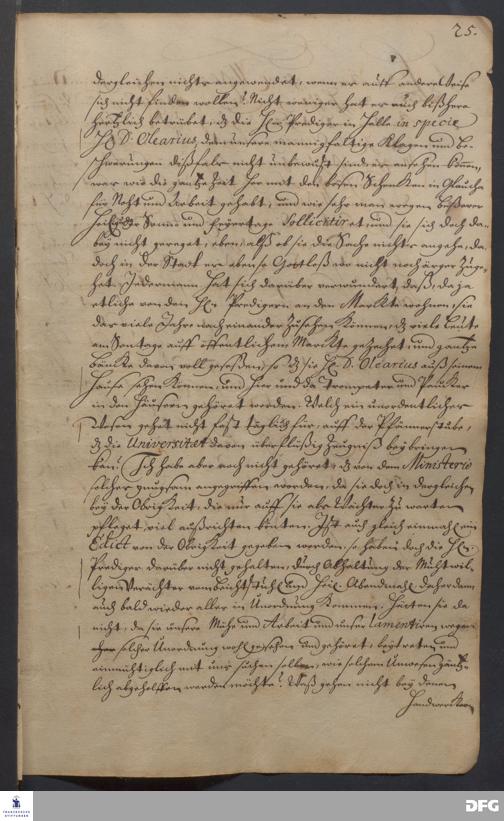 25.
dergleichen nichts angewendet, wenn er auff andere Weise
sich nicht finden wollen? Nicht weniger hat er mich bißhero
hertzlich betrübet, daß die Hln Prediger in Halle in specie
H D. Olearius, dem unsere mannigfaltige Klagen und Be-
schwerungen dißfals nicht unbewust sind,
was wir die gantze Zeit her mit den bösen Schencken in Glaucha
für Noth und Arbeit gehabt, und wie sehr man wegen beßerer
der Sonn und Feyertage Sollicitiret, und sie sich doch da-
bey nicht gereget, eben, alß ob sie die Sache nichts angehe, da
doch in der Stadt es eben so Gottloß wo nicht noch ärger zuge-
het. Jederman hat sich darüber verwundert, daß, da ja
etliche von den Hln Predigern an dem Marckte wohnen, sie
das viele Jahre nach einander zusehen können, daß viele Leute
am Sontage auff öffentlichem Marckte gezechet, und gantze
Bäncke davon voll gesessen, so daß sie H D. Olearius auß seinem
Hause sehen können, und hier und da Trompeter und Paucker
in den Häusern gehöret worden. Welch ein unordentliches
Wesen gehet nicht fast täglich für, auff der Pfännerstube,
daß die Universität davon überflüßig Zeugniß beybringen
kan? Ich habe aber noch nicht gehöret, daß von dem Ministerio
solches gnugsam angegriffen worden, da sie doch in dergleichen
bey der Obrigkeit, die nur auff sie als Wächter zu warten
pfleget, viel außrichten könten. Ist auch gleich einmahl ein
Edict von der Obrigkeit gegeben worden, so haben doch die Hln
Prediger darüber nicht gehalten, durch Abhaltung der Muthwil-
ligen Verächter vom Beichtstuhl und Heil. Abendmahl, daher denn
auch bald wieder alles in Unordnung kommen. Hätten sie da
nicht, da sie unsere Mühe und Arbeit und unser lamentiren wegen
solcher Unordnung wohl gesehen und gehöret, beytreten und
einmüthiglich mit uns suchen sollen, wie solchem Unwesen gäntz-
lich abgeholffen werden möchte? Waß gehen nicht bey denen
Handwercken
FRANCKESCHE STIFTUNGEN
DFG